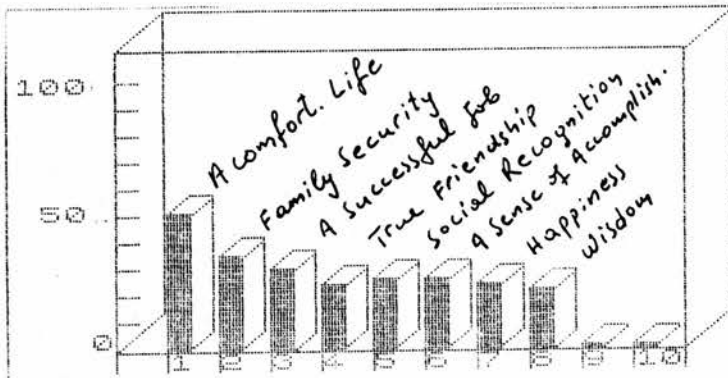 100
A comfort. Life
Family Security
A Successful Job
True Friendship
Social Recognition
A Sense of Accomplish.
Happiness
Wisdom
50
0
1 2 3 4 5 6 7 8 9 10